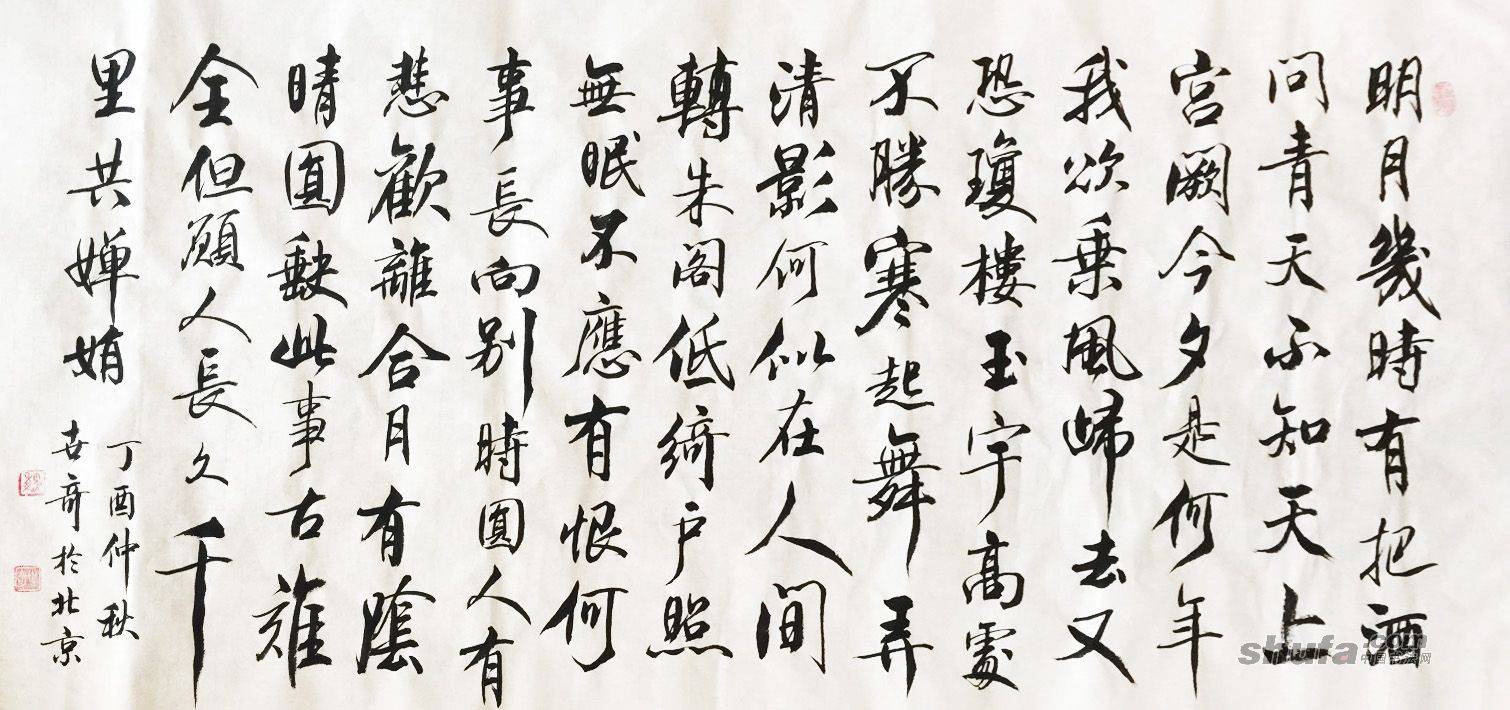 明月幾時有把酒
問青天不知天上
宮闕今夕是何年
我欲乗風歸去又
恐瓊樓玉宇高處
不勝寒起舞弄
清影何似在人間
轉朱阁低綺户照
無眠不應有恨何
事長向别時圓人有
悲歡離合月有陰
晴圓缺此事古難
全但願人長久千
里共嬋娟
丁酉仲秋
世奇於北京
shufa.com
中国书法网